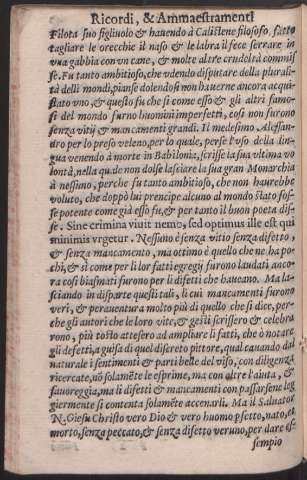 Ricordi, & Ammaestramenti
Filota suo figliuolo & hauendo à Calistene filosofo, fatto
tagliare le orecchie il naso & le labra il fece serrare in
vna gabbia con vn cane, & molte altre crudeltà commis
se. Fu tanto ambitioso, che vdendo disputare della plurali
tà delli mondi, pianse dolendosi non hauerne ancora acqui
stato vno, & questo fu che sì come esso & gli altri famo-
si del mondo furno huomini imperfetti, così non furono
senza vitij & mancamenti grandi. Il medesimo Alessan-
dro per lo preso veleno, per lo quale, perse l'vso della lin-
gua venendo à morte in Babilonia, scrisse la sua vltima vo
lontà, nella qu.de non dolse lasciare la sua gran Monarchia
à nessuno, perche fu tanto ambitioso, che non haurebbe
voluto, che doppò lui prencipe alcuno al mondo stato fos-
se potente come già esso fu, & per tanto il buon poeta dis-
se. Sine crimina viuit nemo, sed optimus ille est qui
minimis vrgetur. Nessuno è senza vitio senza difetto,
& senza mancamento, ma ottimo è quello che ne ha po-
chi, & si come per li lor fatti egregij furono laudati anco-
ra così biasmati furono per li difetti che haueano. Ma la-
sciando in disparte questi tali, li cui mancamenti furono
veri, & perauentura molto più di quello che si dice, per-
che gli autori che le loro vite, & gesti scrissero & celebra
rono, più tosto attesero ad ampliare li fatti, che ò notare
gli defetti, a guisa di quel discreto pittore, qual cauando dal
naturale i sentimenti & parti belle del viso, con diligenza
ricercate, nō solamēte le esprime, ma con altre l'aiuta, &
fauoreggia, ma li difetti & mancamenti con passarsene leg
giermente si contenta solamēte accenarli. Ma il Saluator
N. Giesu Christo vero Dio & vero huomo pfetto, nato, et
morto, senza peccato, & senza difetto veruno, per dare es-
sempio